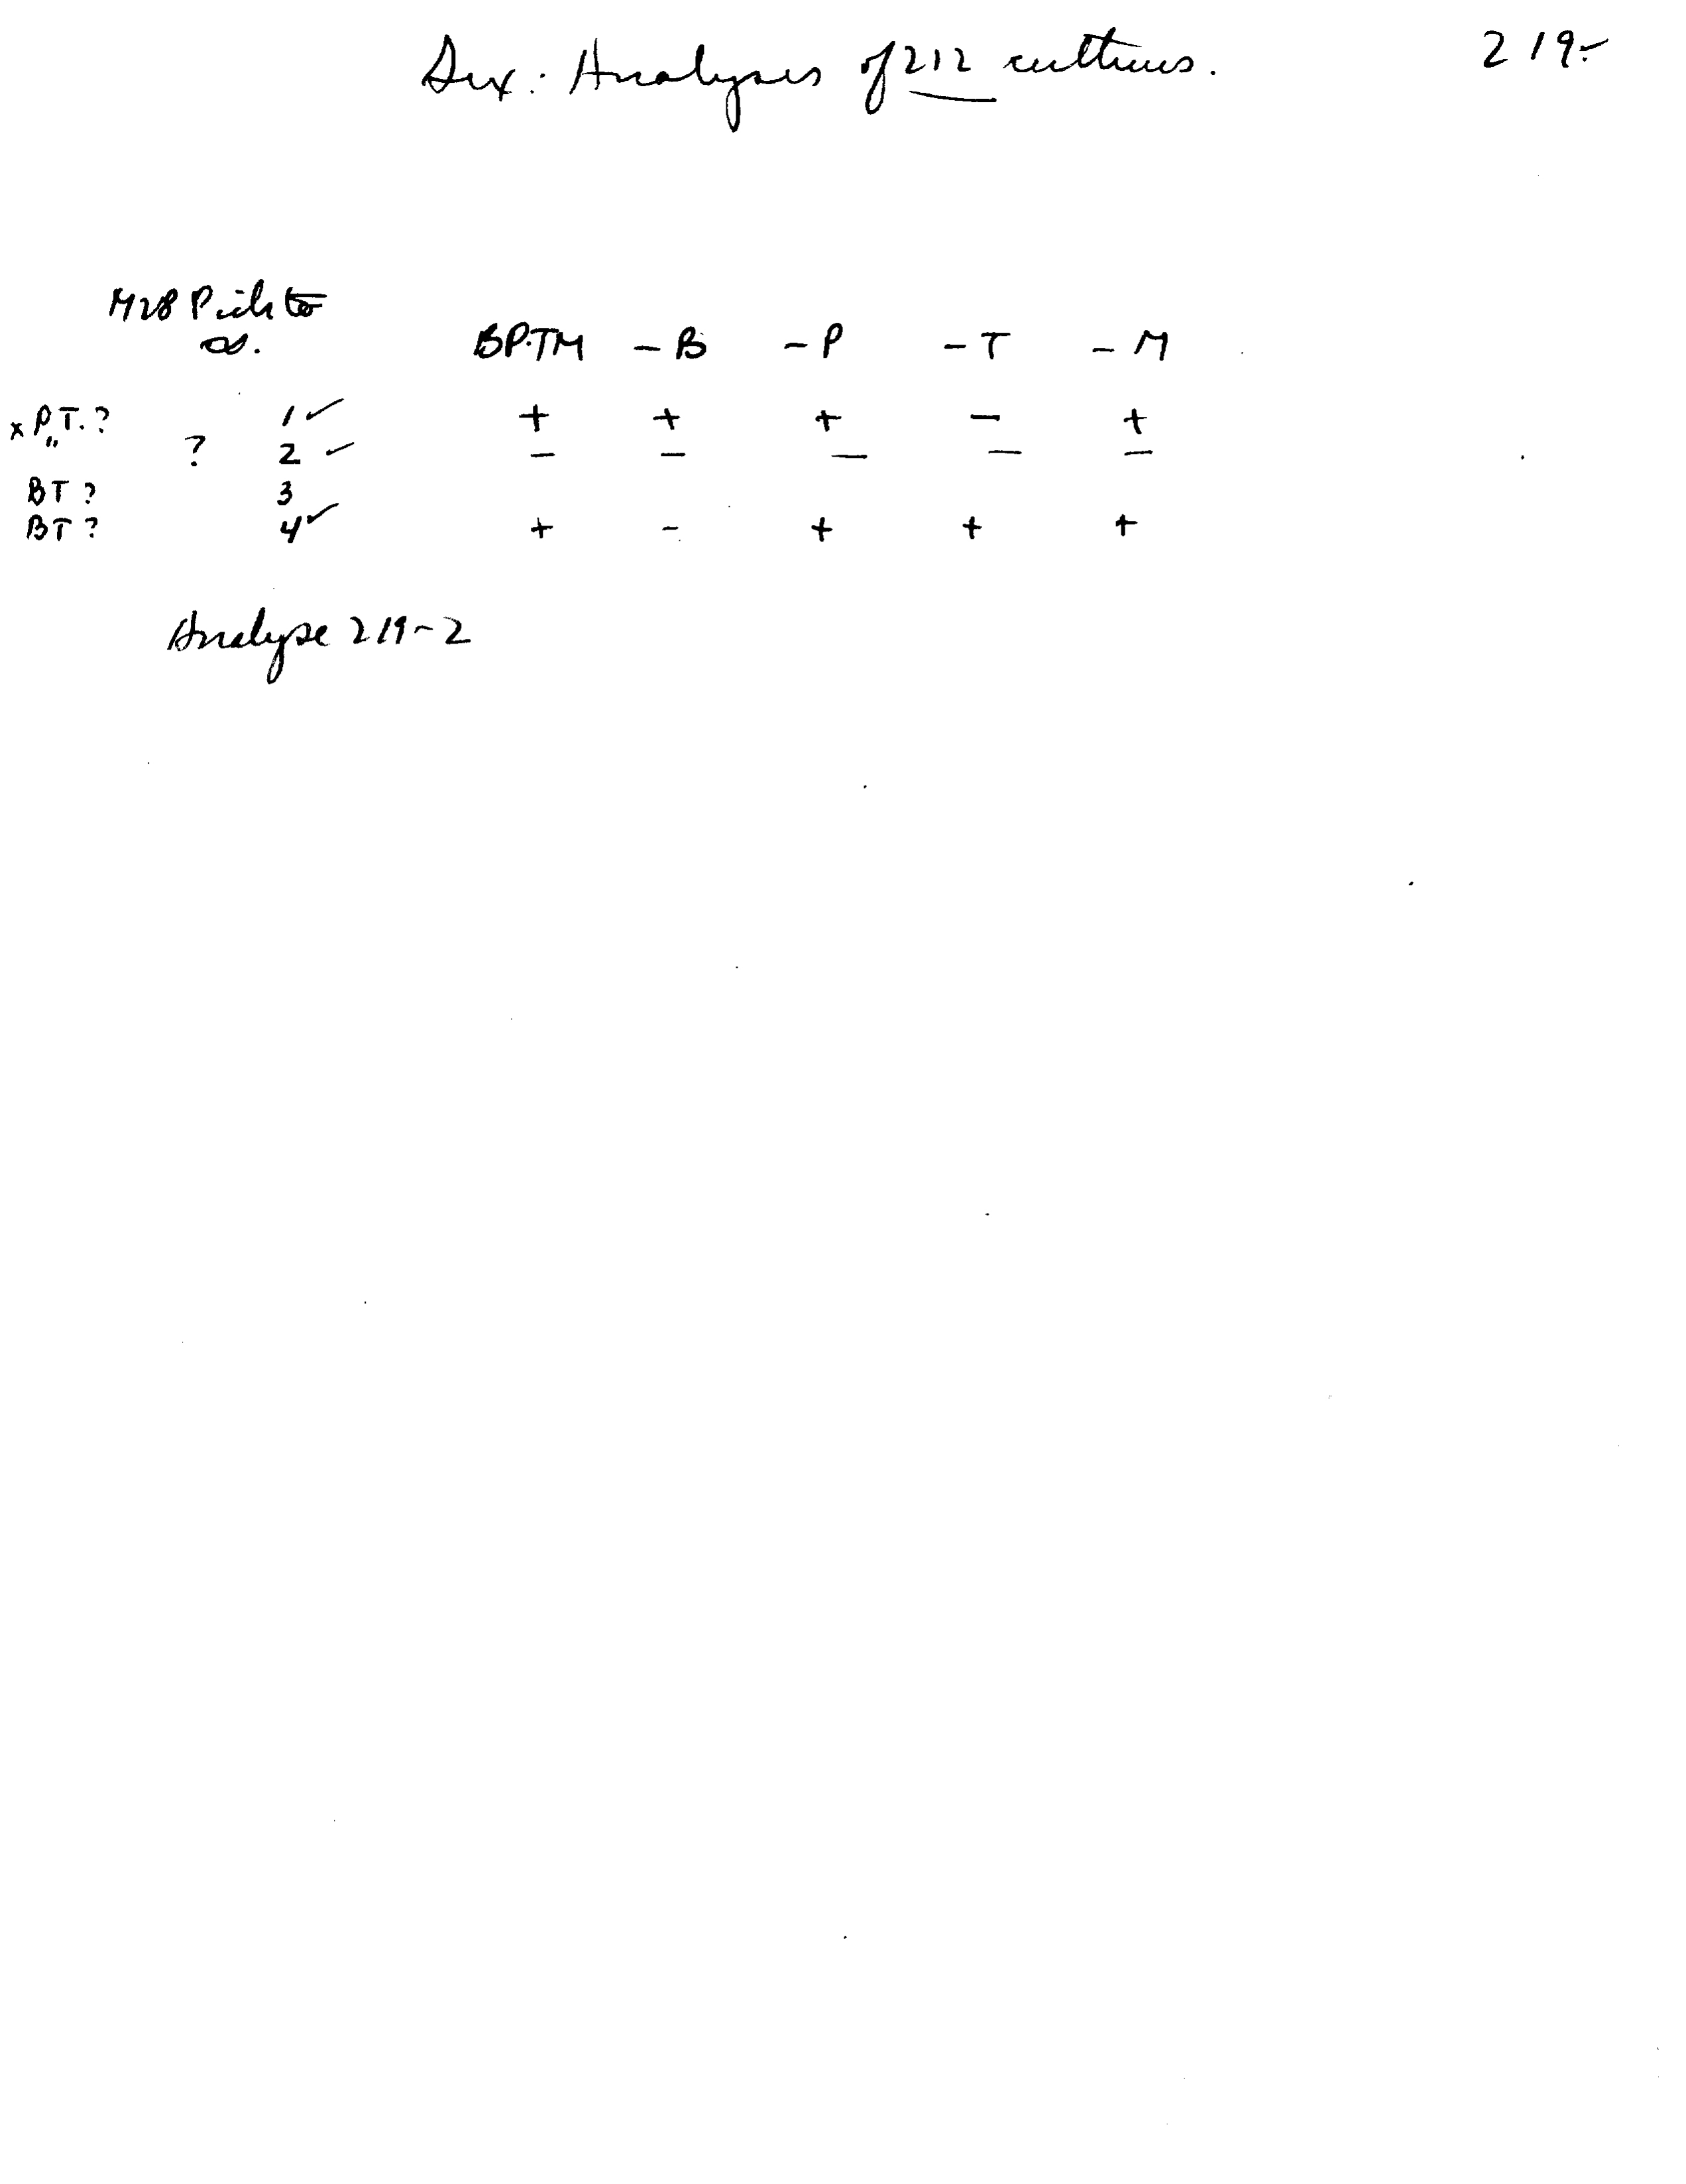 Sex: Analyses of 212 cultures. 219-
M28 Pick to
as.
BPTM - B - P - T - M
x P.T.? 1 ✓ + + + - +
" ? 2 ✓ - - - - -
BT? 3
BT? 4 ✓ + - + + +
Analyse 219-2